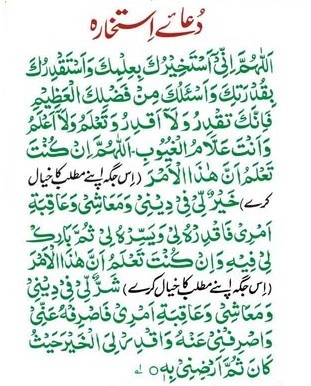 دُعائے اِستخارہ
اَللّٰهُمَّ اِنِّیْ اَسْتَخِيْرُكَ بِعِلْمِكَ وَاَسْتَقْدِرُكَ
بِقُدْرَتِكَ وَاَسْئَلُكَ مِنْ فَضْلِكَ الْعَظِيْمِ
فَاِنَّكَ تَقْدِرُ وَلَا اَقْدِرُ وَتَعْلَمُ وَلَا اَعْلَمُ
وَاَنْتَ عَلَّامُ الْغُيُوْبِ۔ اَللّٰهُمَّ اِنْ كُنْتَ
تَعْلَمُ اَنَّ هٰذَا الْاَمْرَ (اِس جگہ اپنے مطلب کا خیال
کرے) خَيْرٌ لِّیْ فِیْ دِيْنِیْ وَمَعَاشِیْ وَعَاقِبَةِ
اَمْرِیْ فَاقْدِرْهُ لِیْ وَيَسِّرْهُ لِیْ ثُمَّ بَارِكْ
لِیْ فِيْهِ وَاِنْ كُنْتَ تَعْلَمُ اَنَّ هٰذَا الْاَمْرَ
(اِس جگہ اپنے مطلب کا خیال کرے) شَرٌّ لِّیْ فِیْ دِيْنِیْ
وَمَعَاشِیْ وَعَاقِبَةِ اَمْرِیْ فَاصْرِفْهُ عَنِّیْ
وَاصْرِفْنِیْ عَنْهُ وَاقْدِرْ لِیَ الْخَيْرَ حَيْثُ
كَانَ ثُمَّ اَرْضِنِیْ بِهٖ ○